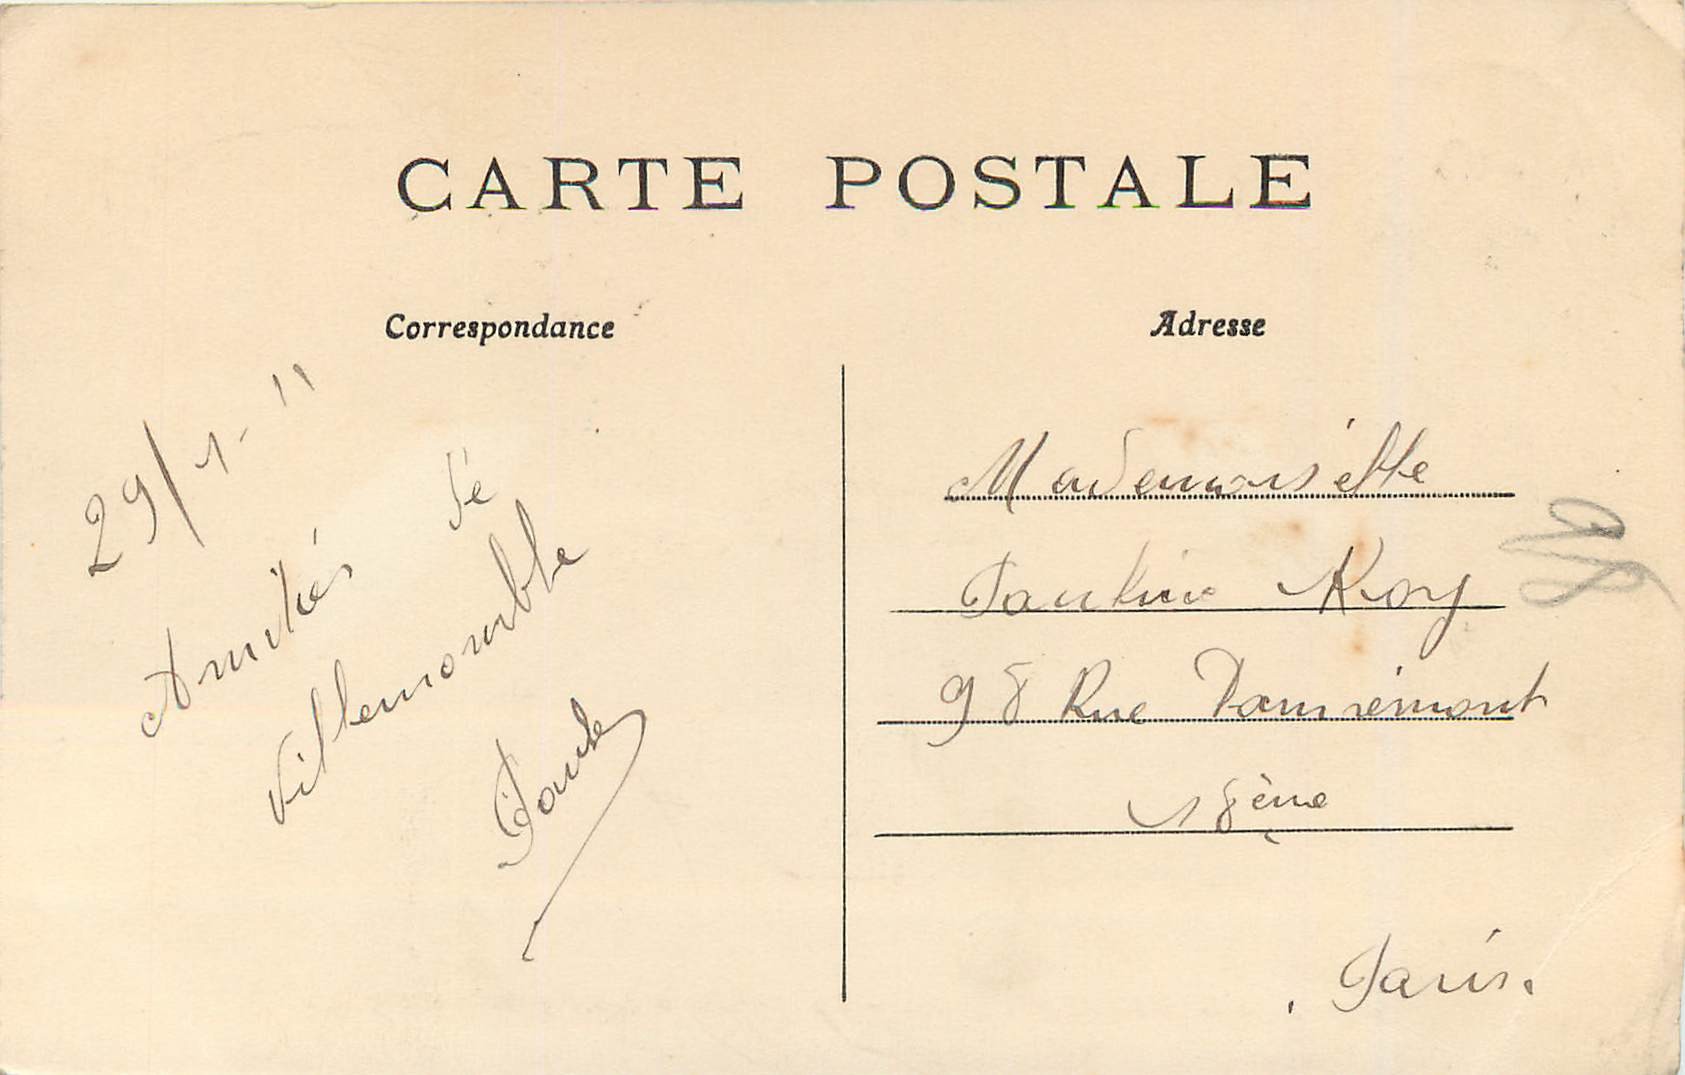 CARTE POSTALE
Correspondance
29/1-11
Amitiés de
Villemomble
Paule
Adresse
Mademoiselle
Pauline Roy
98 Rue Damrémont
18ème
Paris.